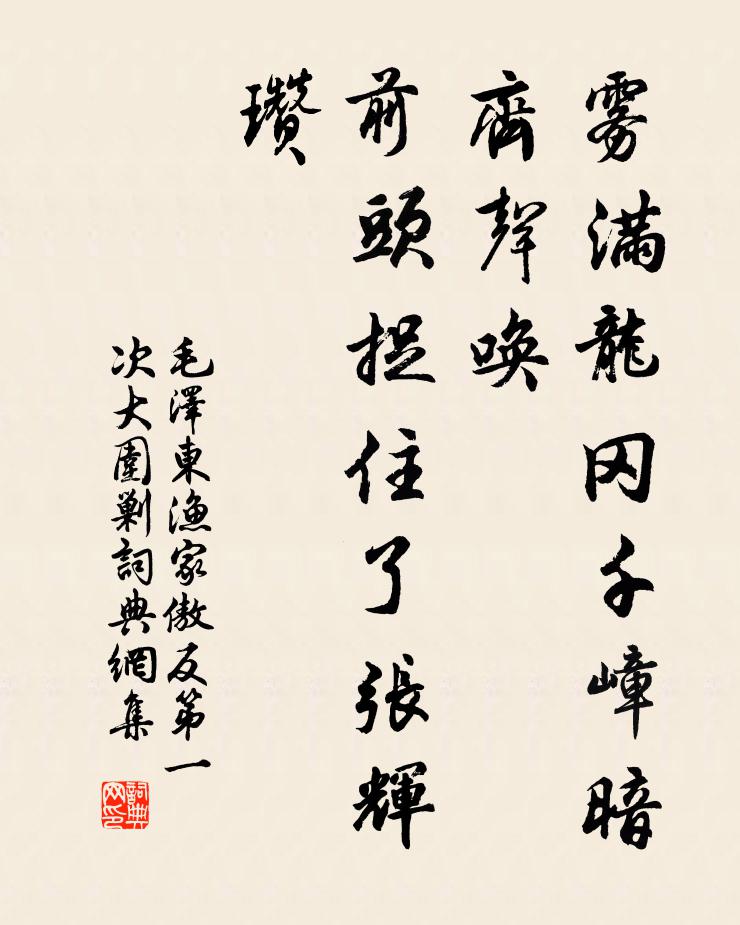 雾滿龍冈千嶂暗
齊聲唤
前頭捉住了張輝
瓚
毛澤東漁家傲反第一
次大圍剿詞典網集
詞典
网印